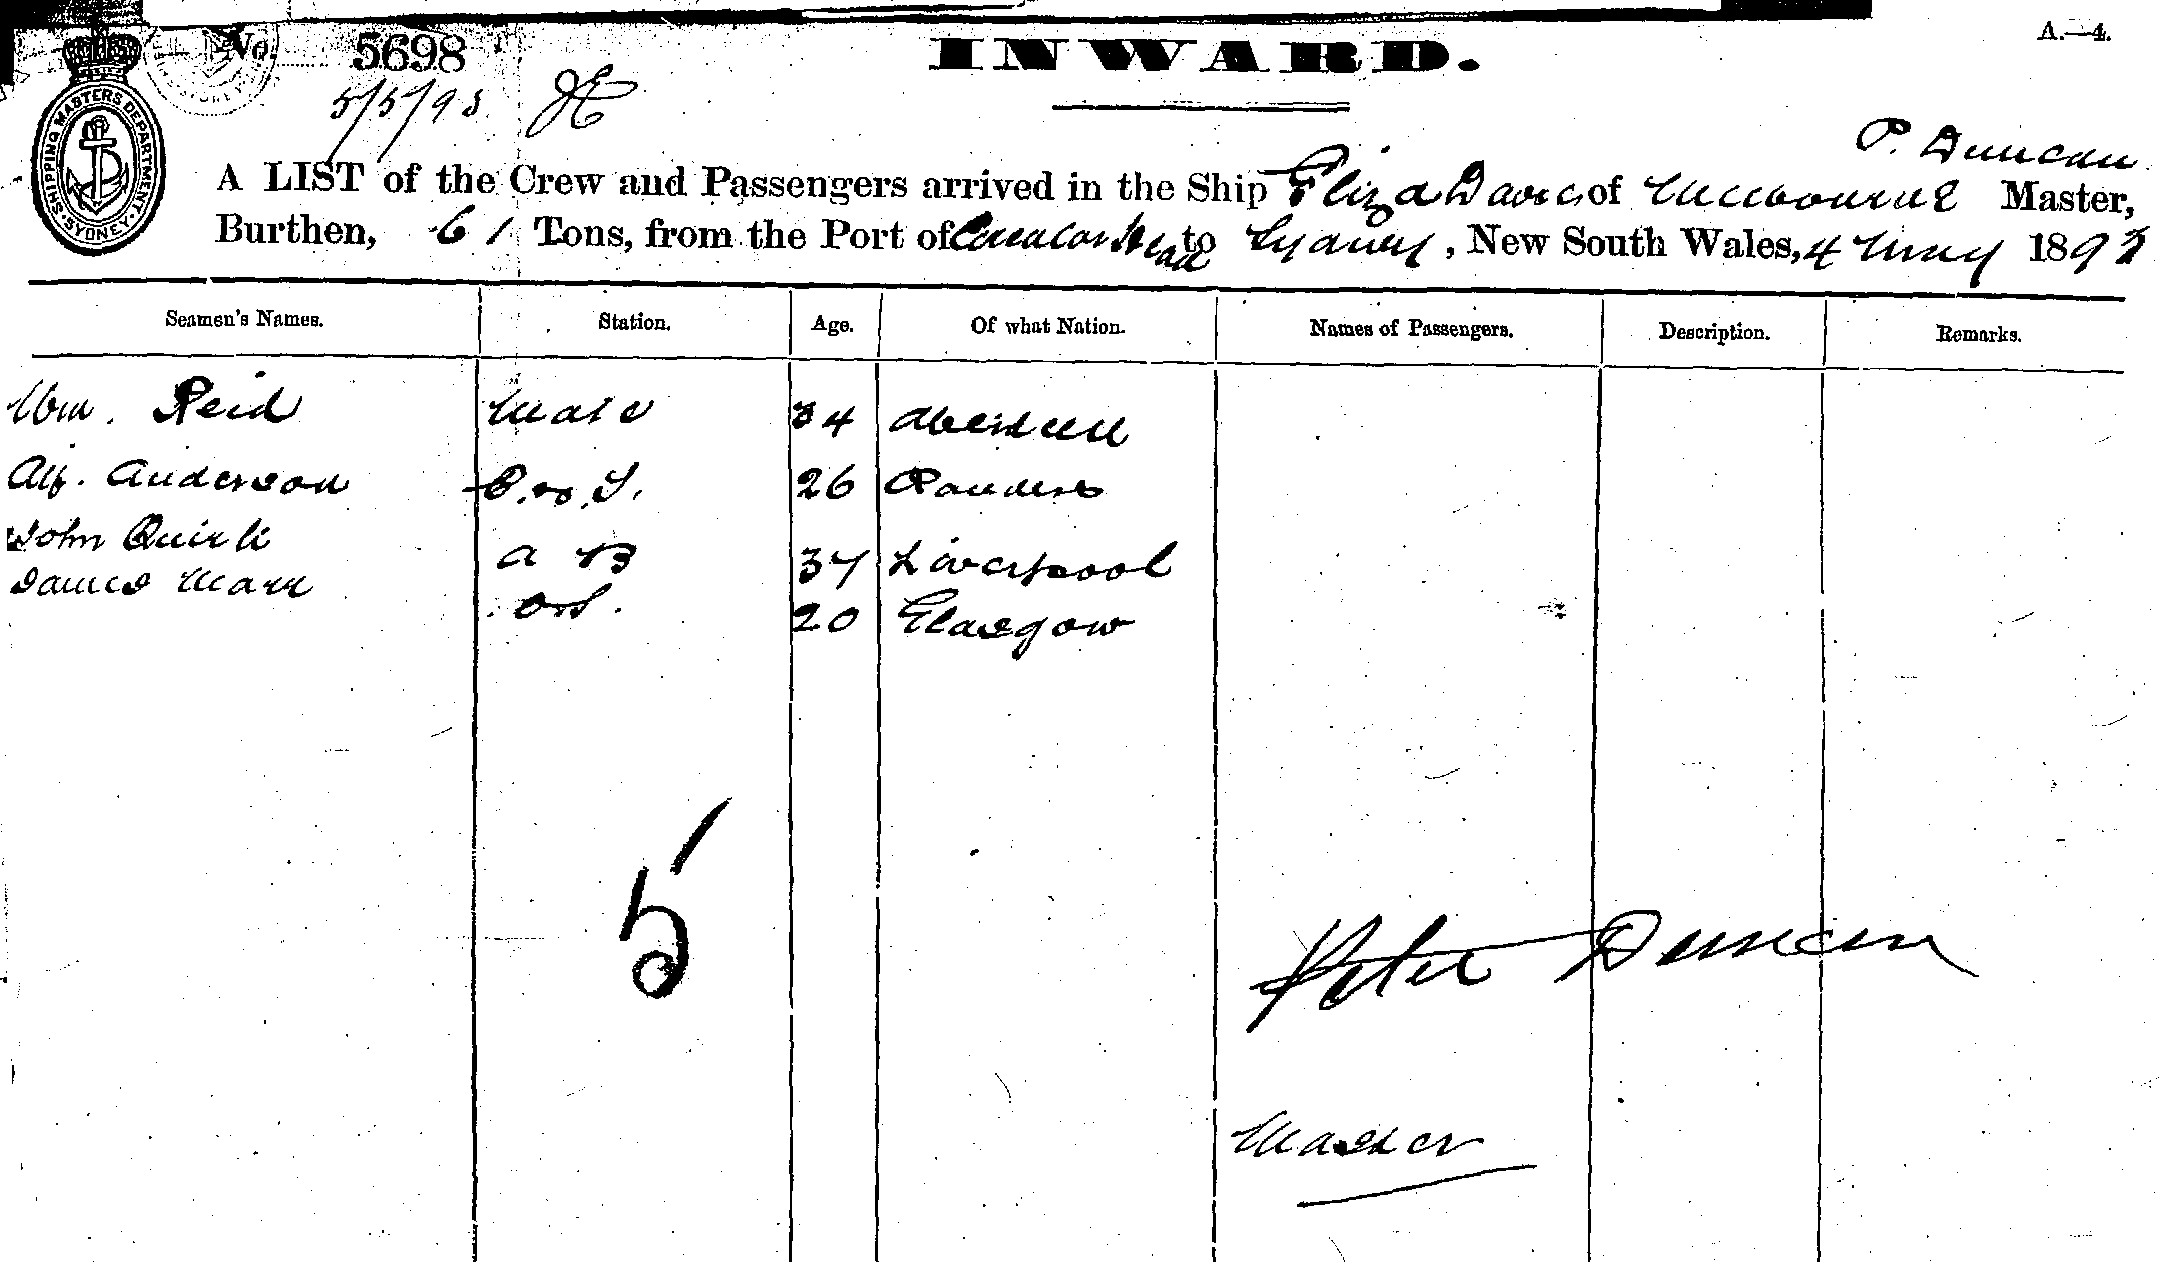 No. 5698
INWARD.
A.—4.
5/5/93
SHIPPING MASTERS DEPARTMENT. SYDNEY.
P. Duncan
A LIST of the Crew and Passengers arrived in the Ship Eliza Davies of Melbourne Master,
Burthen, 61 Tons, from the Port of Circular Head to Sydney, New South Wales, 4 May 1893
Seamen's Names. Station. Age. Of what Nation. Names of Passengers. Description. Remarks.
Wm. Reid Mate 34 Aberdeen
Alf. Anderson C. & S. 26 Randers
John Quirk A B 37 Liverpool
James Marr O.S. 20 Glasgow
5
Peter Duncan
Master